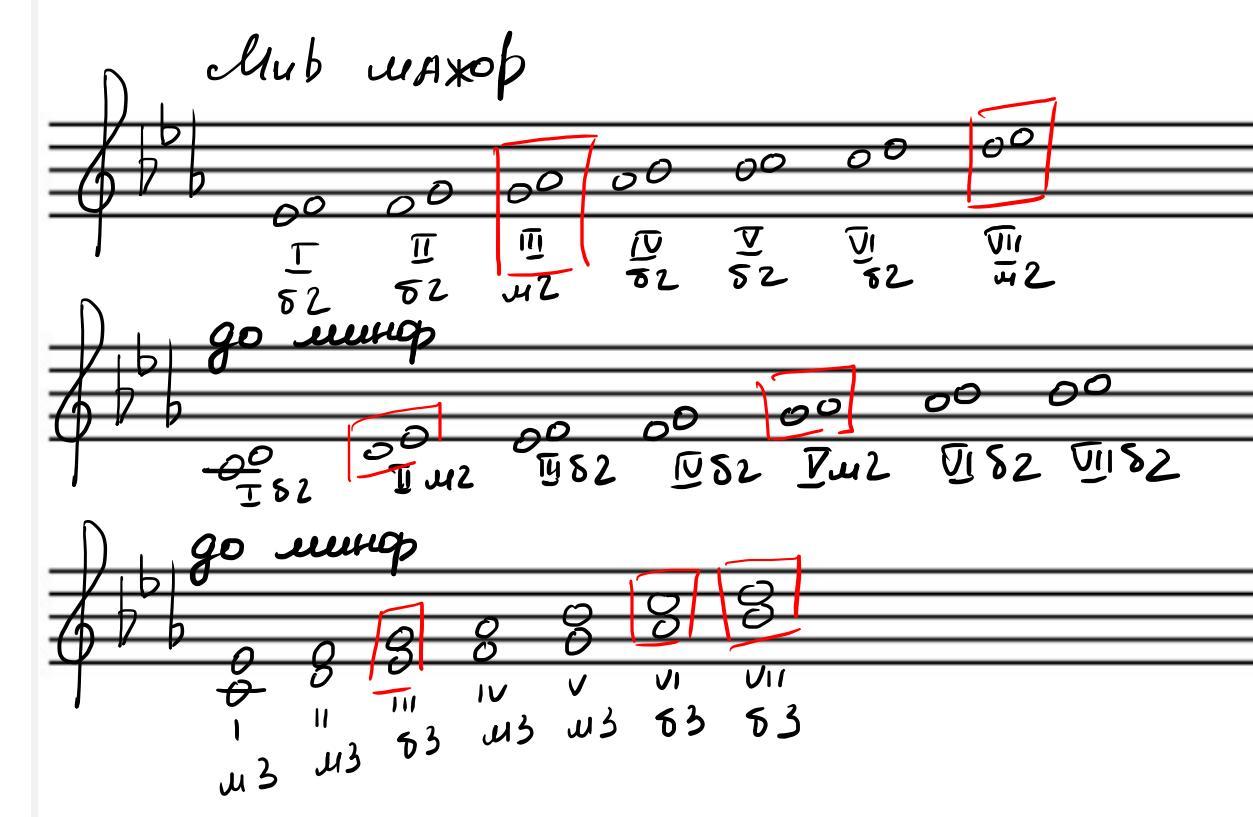 Миb мажор
I II III IV V VI VII
б2 б2 м2 б2 б2 б2 м2
до минор
I б2 II м2 III б2 IV б2 V м2 VI б2 VII б2
до минор
I II III IV V VI VII
м3 м3 б3 м3 м3 б3 б3